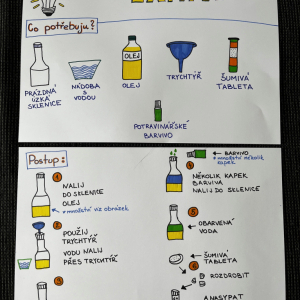 Co potřebuju?
PRÁZDNÁ
ÚZKÁ
SKLENICE
NÁDOBA
S
VODOU
OLEJ
OLEJ
TRYCHTÝŘ
ŠUMIVÁ
TABLETA
POTRAVINÁŘSKÉ
BARVIVO
Postup:
1
NALIJ
DO SKLENICE
OLEJ
* množství viz obrázek
2
POUŽIJ
TRYCHTÝŘ
VODU NALIJ
PŘES TRYCHTÝŘ
3
4
BARVIVO
* množství několik
kapek
NĚKOLIK KAPEK
BARVIVA
NALIJ DO SKLENICE
5
OBARVENÁ
VODA
6
ŠUMIVÁ
TABLETA
ROZDROBIT
NASYPAT